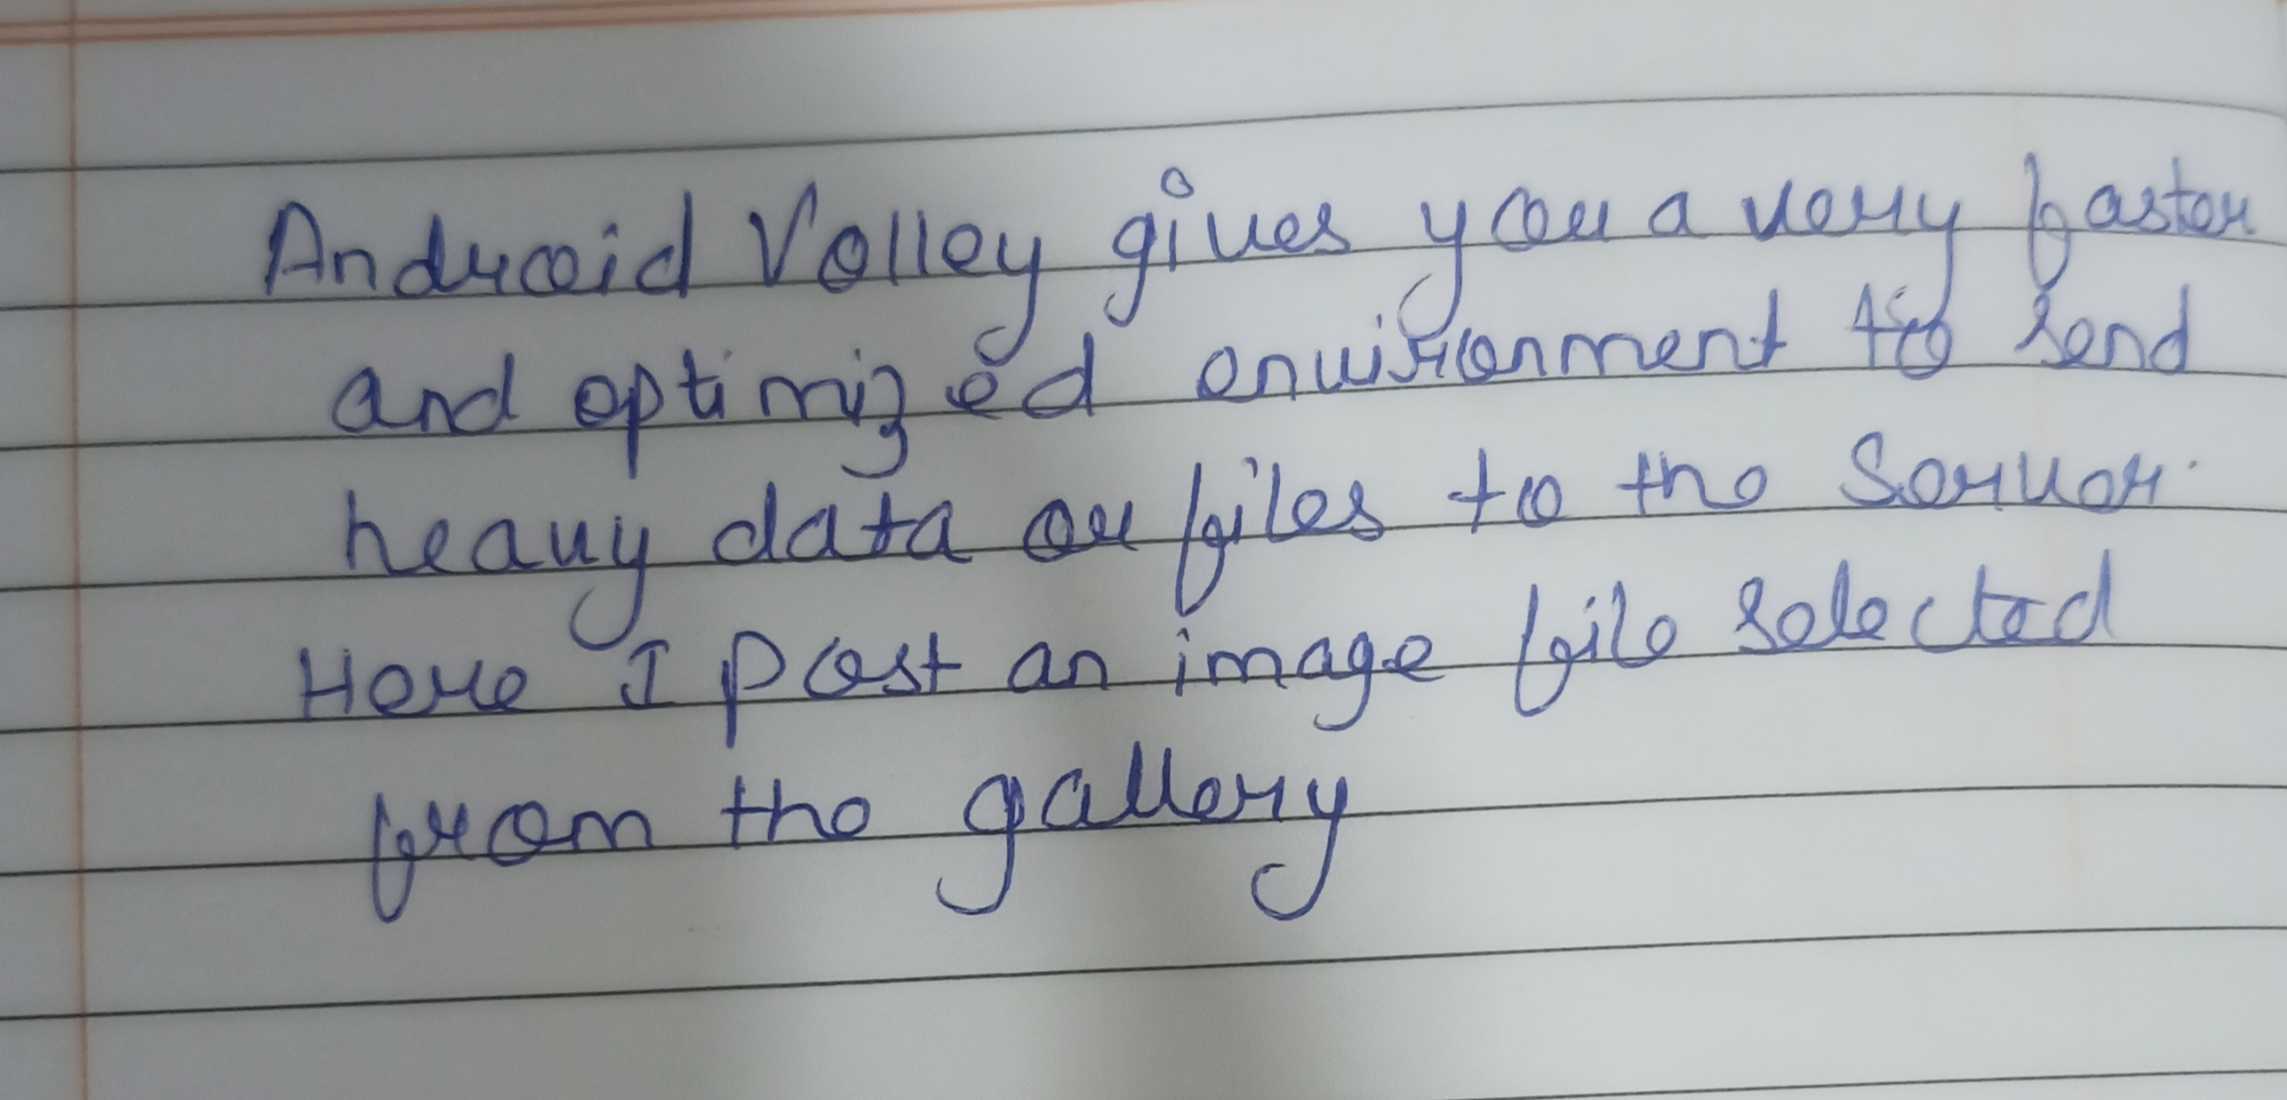 Android Volley gives you a very faster
and optimized environment to send
heavy data or files to the Server.
Here I post an image file selected
from the gallery